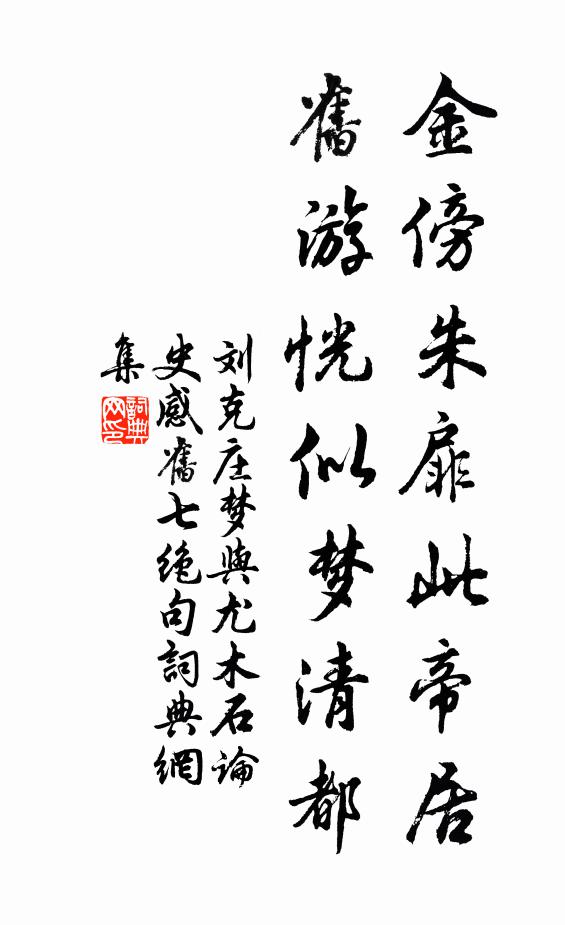 金傍朱扉此帝居
舊游恍似梦清都
刘克庄梦與尤木石論
史感舊七绝句詞典網
集
詞典
网印